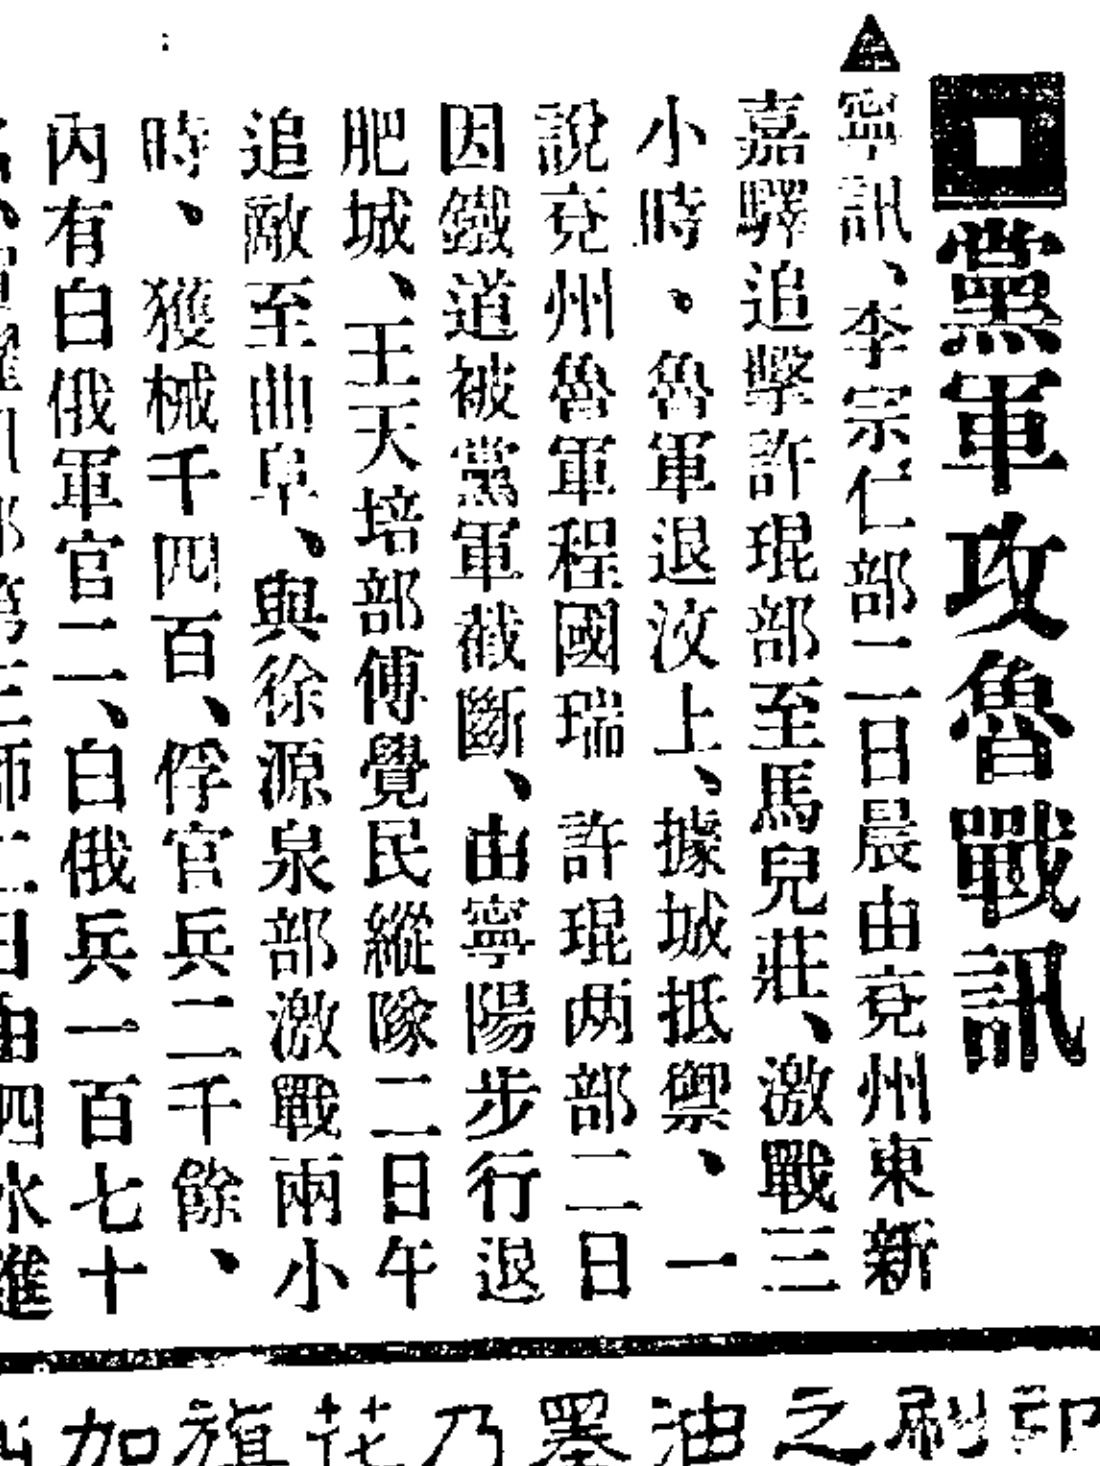 黨軍攻魯戰訊
寧訊、李宗仁部二日晨由兗州東新
嘉驛追擊許琨部至馬兒莊、激戰三
小時、魯軍退汶上、據城抵禦、一
說兗州魯軍程國瑞 許琨两部二日
因鐵道被黨軍截斷、由寧陽步行退
肥城、王天培部傅覺民縱隊二日午
追敵至曲阜、與徐源泉部激戰兩小
時、獲械千四百、俘官兵二千餘、
內有白俄軍官二、白俄兵一百七十
部第三師二日由泗水進
印刷之油墨乃花旗加